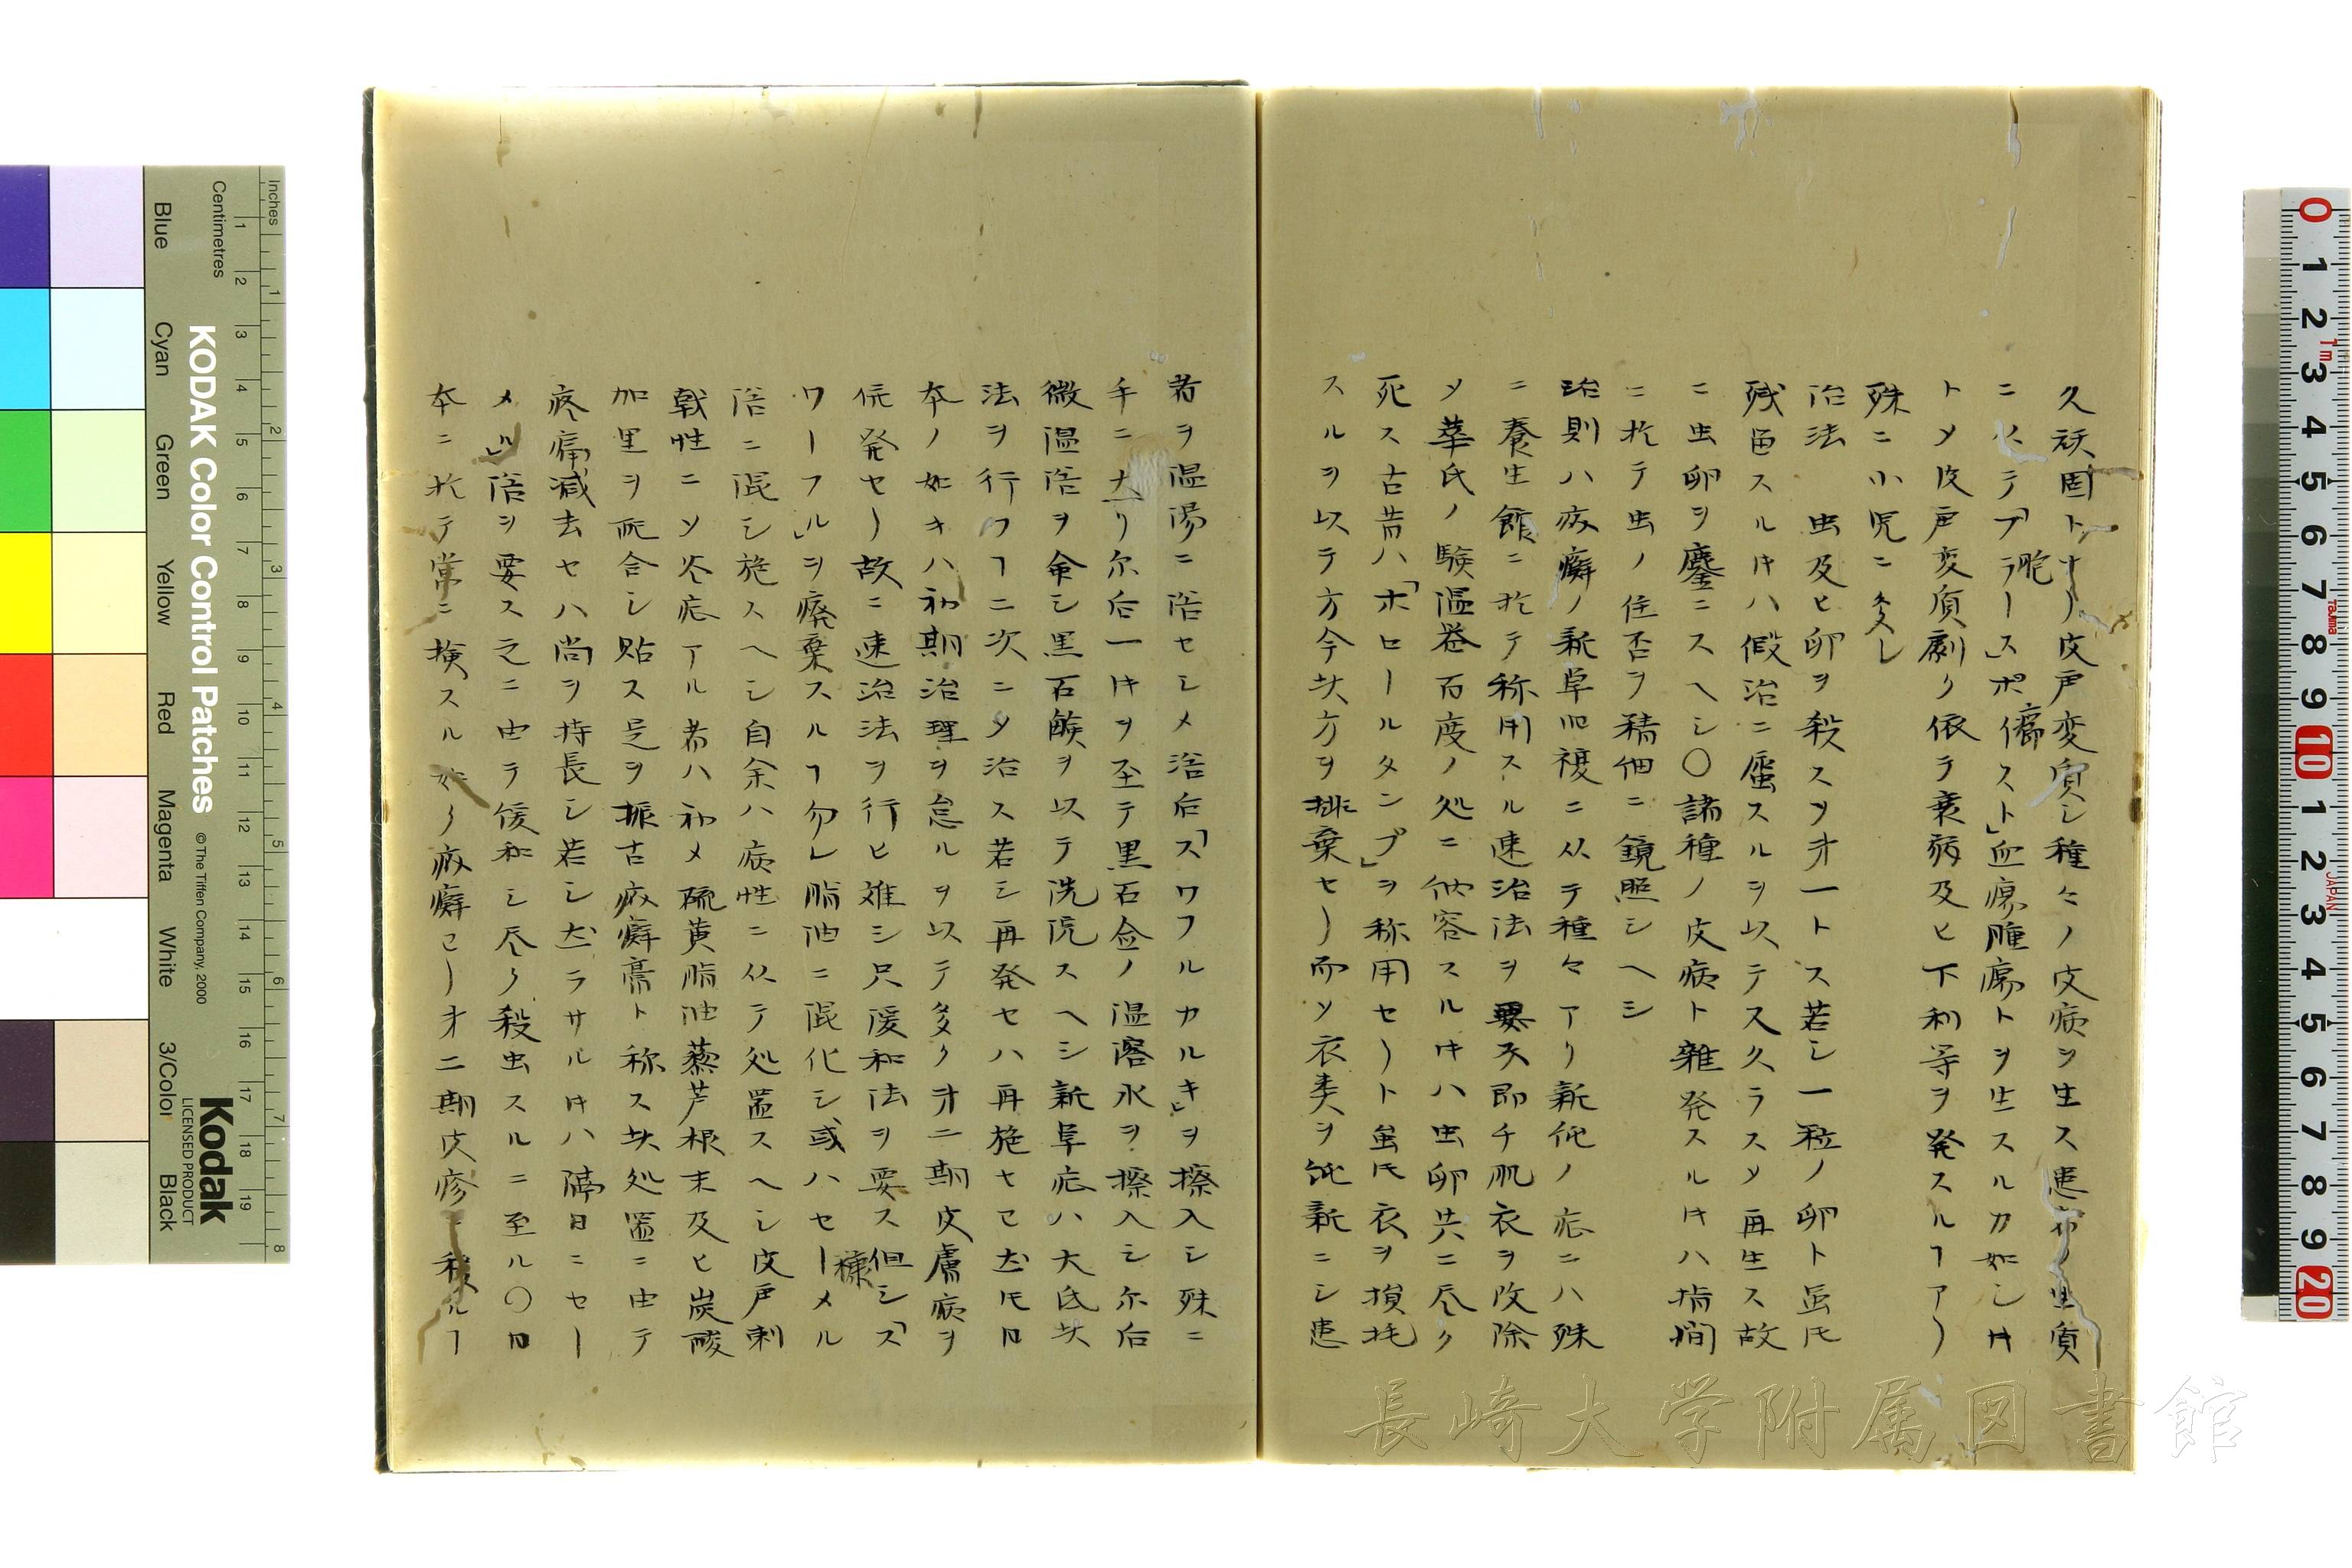 久祅固トナリ皮戸変質シ種々ノ皮病ヲ生ス
ニ〆テ「ブラースポスト」血瘍腫瘍トヲ生スルカ如シ
皰 癤
トメ皮戸変質劇ク依テ衰弱及ヒ下利等ヲ発スルヿアリ
殊ニ小児ニ多し
治法 虫及ヒ卵ヲ殺スヲ才一トス若シ一粒ノ卵ト虽𪜈
残畄スル𪜈ハ假治ニ属スルヲ以テス久ラスメ再生ス故
ニ虫卵ヲ鏖ニスヘシ〇諸種ノ皮病ト雑発スル𪜈ハ指間
ニ於テ虫ノ住否ヲ精細ニ鏡照シヘシ
治則ハ疥癬ノ新単四複ニ从テ種々アリ新ノ症ニハ殊
ニ養生館ニ於テ称用スル速治法ヲ要ス即チ肌衣ヲ改除
メ華氏ノ験温器百度ノ処ニ納容スル𪜈ハ虫卵共ニ尽ク
死ス古昔ハ「ホセールタンブ」ヲ称用セリト虽𪜈衣ヲ損耗
スルヲ以テ方今其方ヲ排棄セリ而メ衣类ヲ新ニシ患
者ヲ温湯ニ浴セシメ浴后「スワフルカルキ」ヲ擦入シ殊ニ
手ニ大リ尓后一𪜈ヲ至テ黒石僉ノ温溶水ヲ擦入シ尓后
微温浴ヲ命シ黒石鹸ヲ以テ洗浣スヘシ新単症ハ大氐其
法ヲ行フヿニ次ニメ治ス若シ再発セハ再施セヨ𪜈日
本ノ如キハ初期治理ヲ怠ルヲ以テ多ク才二期皮膚病ヲ
併発セリ故ニ速治法ヲ行ヒ難シ只緩和法ヲ要ス但シ「ス
ワーフル」ヲ廃棄スルヿ勿レ脂油ニ混化シ或ハセーメル
糠
浴ニ混シ施スヘシ自余ハ病性ニ从テ処置スヘシ皮戸刺
戟性ニメ炎症アル者ハ初メ硫黄脂油藜芦根末及ヒ炭酸
加里ヲ配合シ貼ス是ヲ振古疥癬膏ト称ス其処置ニ由テ
疼痛減去セハ尚ヲ持長シ若シ去ラサル𪜈ハ隔日ニセー
メル」浴ヲ要ス之ニ由テ緩和シ尽ク殺虫スルニ至ル〇日
本ニ於テ常ニ検スル如ク疥癬ヨリ才二期皮疹ニ移ルヿ
Inches
Centimetres
KODAK Color Control Patches
© The Tiffen Company, 2000
Kodak
LICENSED PRODUCT
Blue
Cyan
Green
Yellow
Red
Magenta
White
3/Color
Black
長崎大学附属図書館